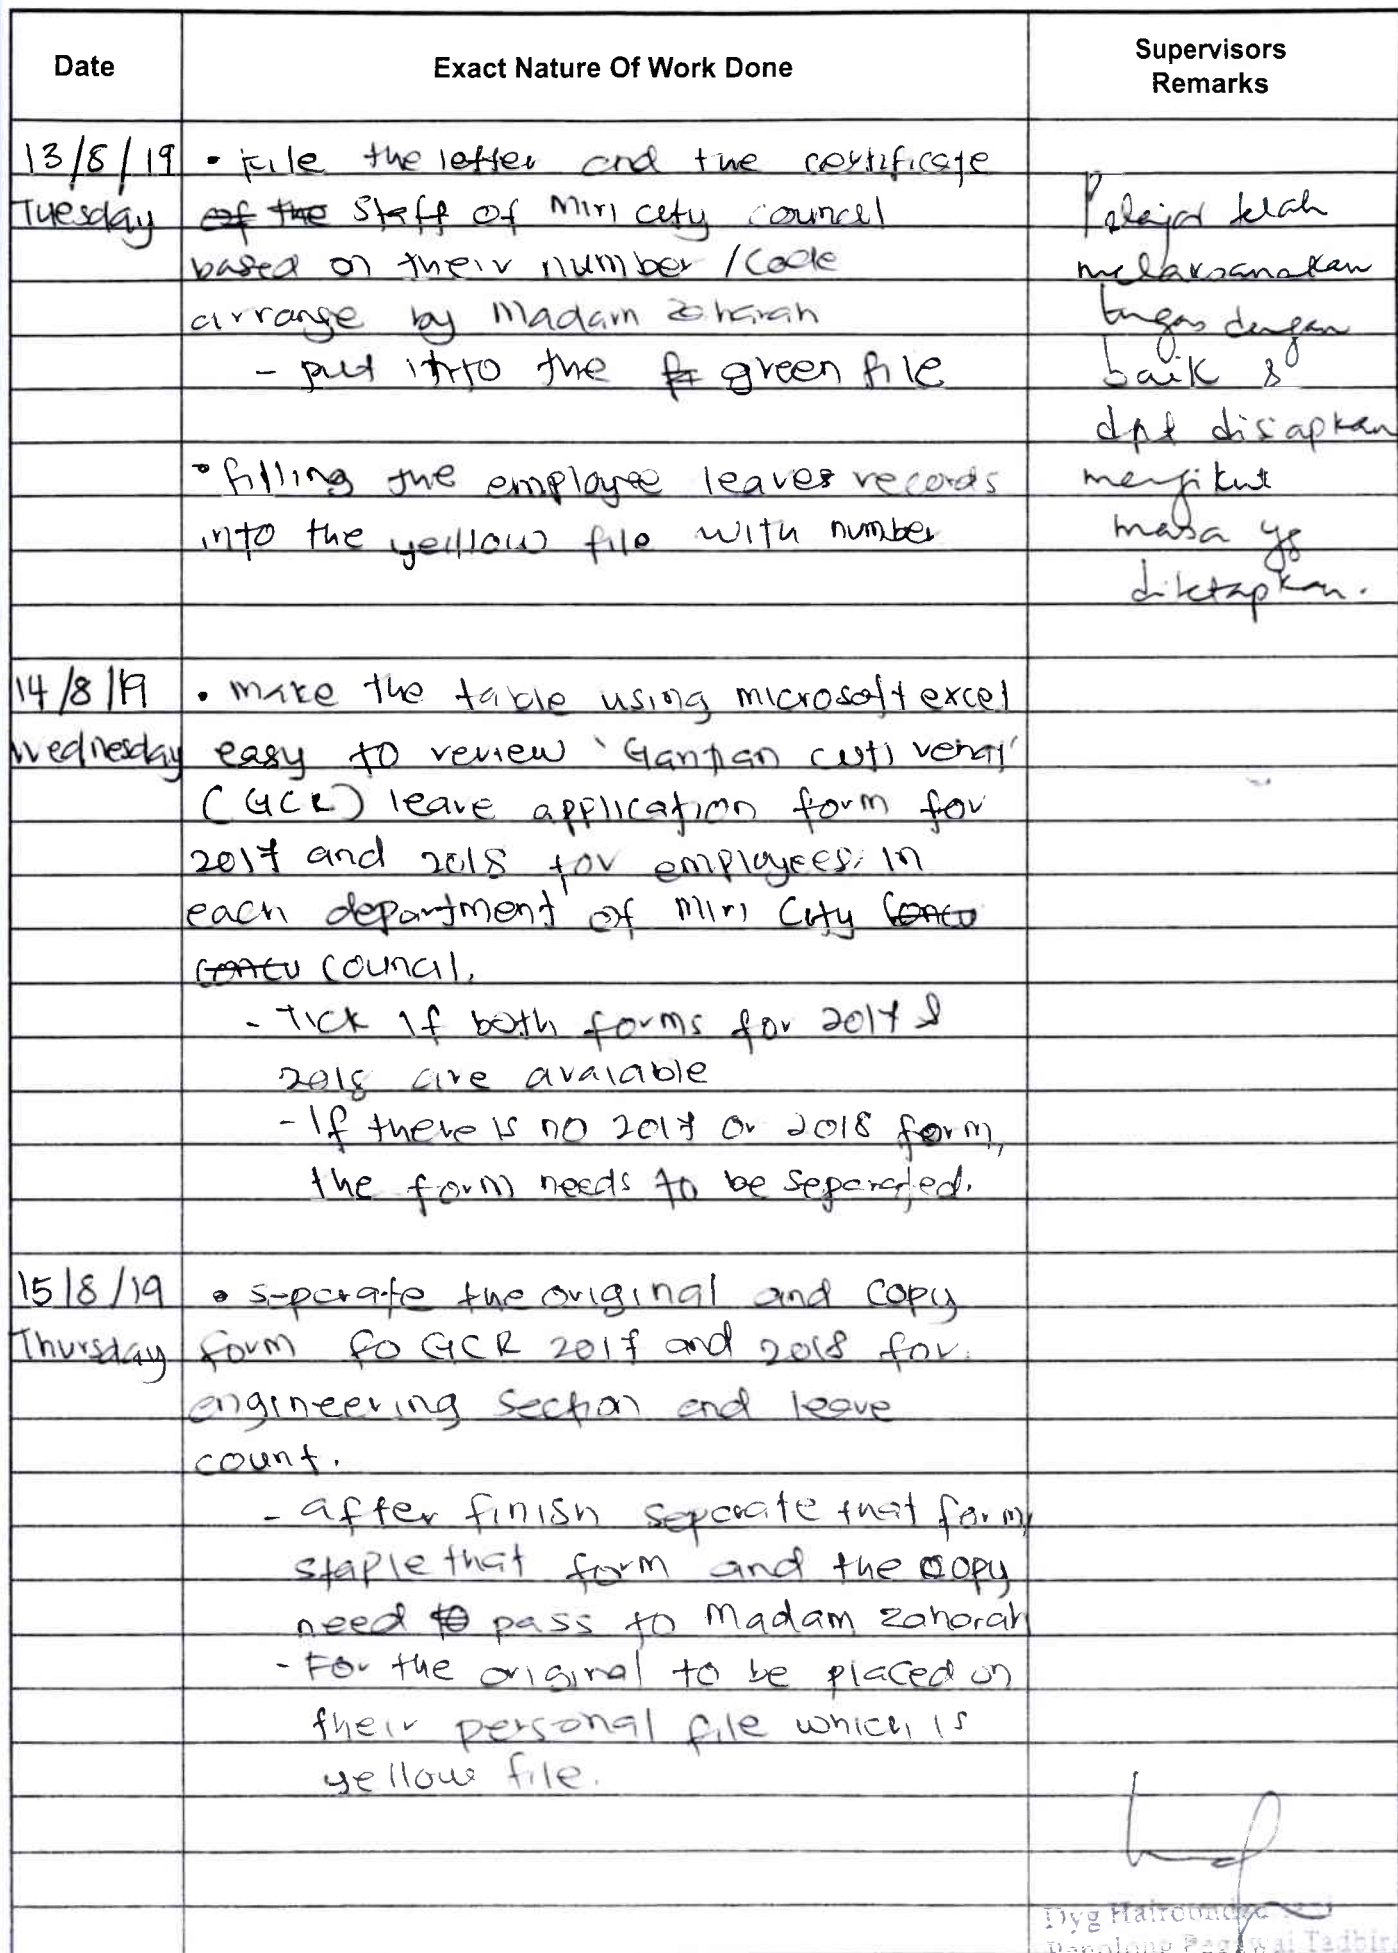 Date
Exact Nature Of Work Done
Supervisors
Remarks
13/8/19
Tuesday
• File the letter and the certificate
of the Staff of Miri city council
based on their number / Code
arrange by Madam Zaharah
- put into the green file
• filling the employee leaves records
into the yelllow file with number
Pelajar telah
melaksanakan
tugas dengan
baik &
dpt disiapkan
mengikut
masa yg
ditetapkan.
14/8/19
Wednesday
• make the table using microsoft excel
easy to review 'Gantian cuti rehat'
(GCR) leave application form for
2017 and 2018 for employees in
each department of Miri City Concu
Concu Council.
- Tick if both forms for 2017 &
2018 are avaiable
- If there is no 2017 or 2018 form,
the form needs to be separated.
15/8/19
Thursday
• separate the original and copy
form fo GCR 2017 and 2018 for
engineering section and leave
count.
- after finish separate that form,
staple that form and the copy
need to pass to Madam Zaharah
- For the original to be placed on
their personal file which is
yellow file.
Dyg
Penolong Pegawai Tadbir